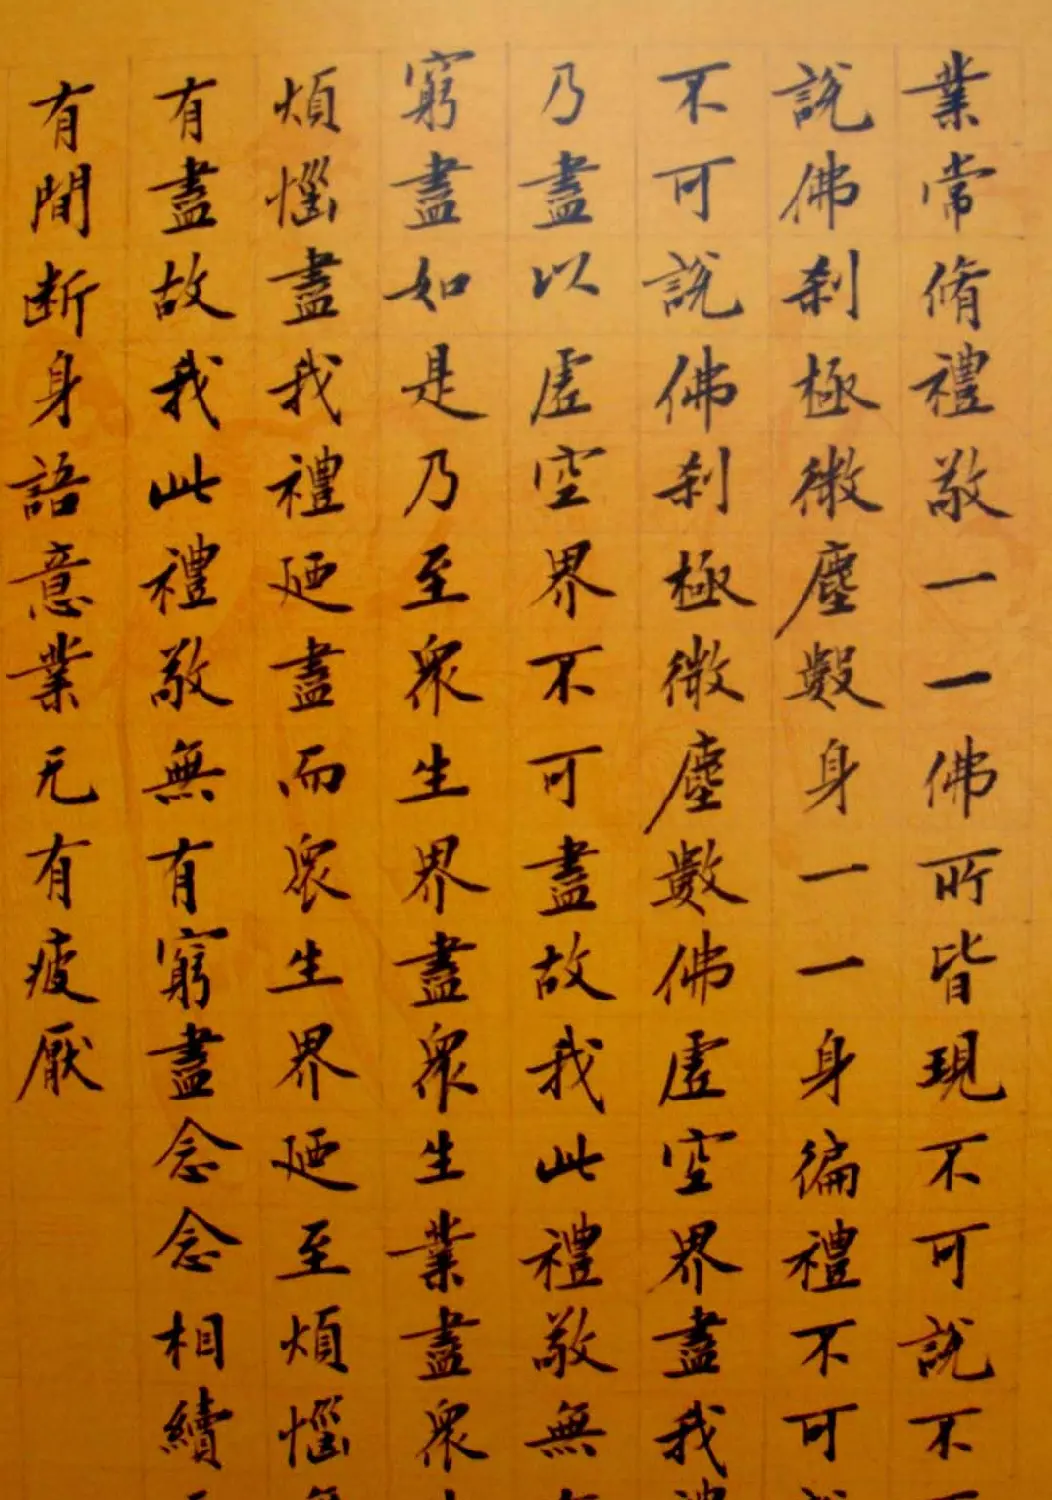 業常脩禮敬一一佛所皆現不可說不
說佛刹極微塵數身一一身徧禮不可
不可說佛刹極微塵數佛虛空界盡我
乃盡以虛空界不可盡故我此禮敬無
窮盡如是乃至衆生界盡衆生業盡衆
煩惱盡我禮廼盡而衆生界廼至煩惱
有盡故我此禮敬無有窮盡念念相續
有間断身語意業无有疲厭